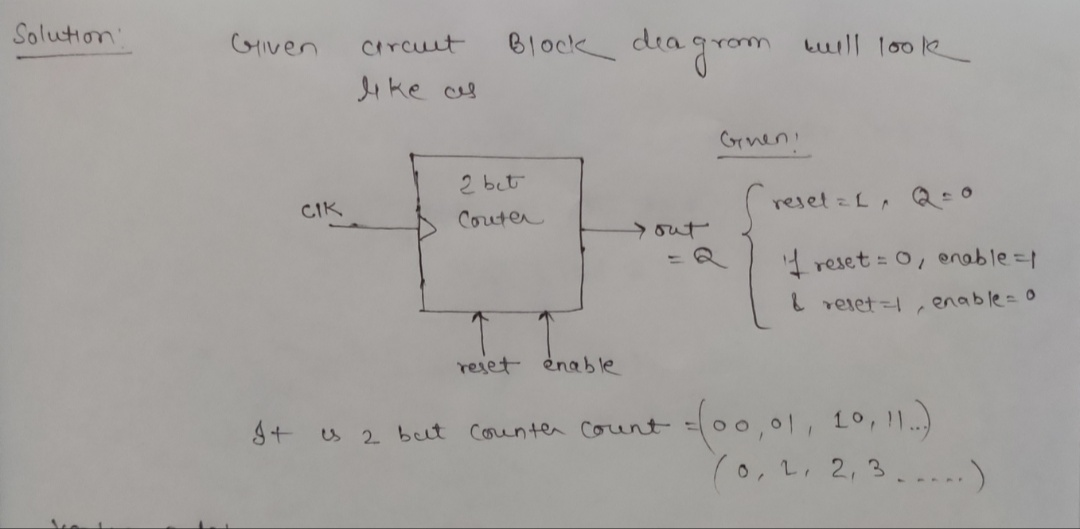 Solution:
Given circuit Block diagram will look
like as
Given:
2 bit
Couter
CIK
out
= Q
reset = 1, Q = 0
if reset = 0, enable = 1
& reset = 1, enable = 0
reset enable
It is 2 bit counter count = (00, 01, 10, 11...)
(0, 1, 2, 3 ......)